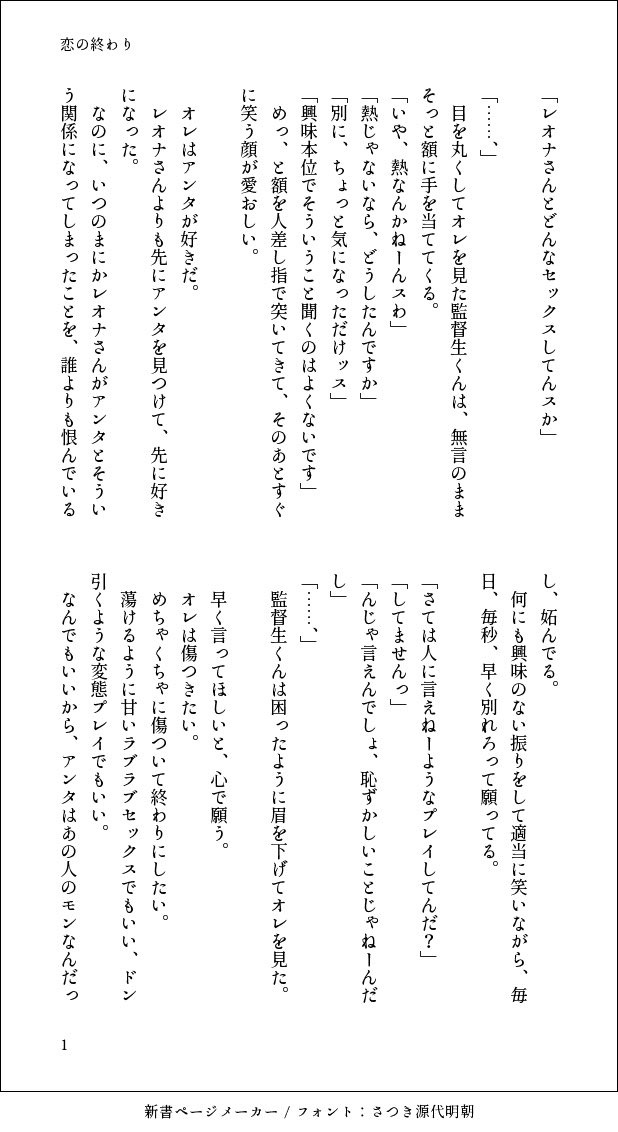 恋の終わり
「レオナさんとどんなセックスしてんスか」
「……、」
　目を丸くしてオレを見た監督生くんは、無言のまま
そっと額に手を当ててくる。
「いや、熱なんかねーんスわ」
「熱じゃないなら、どうしたんですか」
「別に、ちょっと気になっただけッス」
「興味本位でそういうこと聞くのはよくないです」
　めっ、と額を人差し指で突いてきて、そのあとすぐ
に笑う顔が愛おしい。
　オレはアンタが好きだ。
　レオナさんよりも先にアンタを見つけて、先に好き
になった。
　なのに、いつのまにかレオナさんがアンタとそうい
う関係になってしまったことを、誰よりも恨んでいる
し、妬んでる。
　何にも興味のない振りをして適当に笑いながら、毎
日、毎秒、早く別れろって願ってる。
「さては人に言えねーようなプレイしてんだ？」
「してませんっ」
「んじゃ言えんでしょ、恥ずかしいことじゃねーんだ
し」
「……、」
　監督生くんは困ったように眉を下げてオレを見た。
　早く言ってほしいと、心で願う。
　オレは傷つきたい。
　めちゃくちゃに傷ついて終わりにしたい。
　蕩けるように甘いラブラブセックスでもいい、ドン
引くような変態プレイでもいい。
　なんでもいいから、アンタはあの人のモンなんだっ
1
新書ページメーカー / フォント：さつき源代明朝